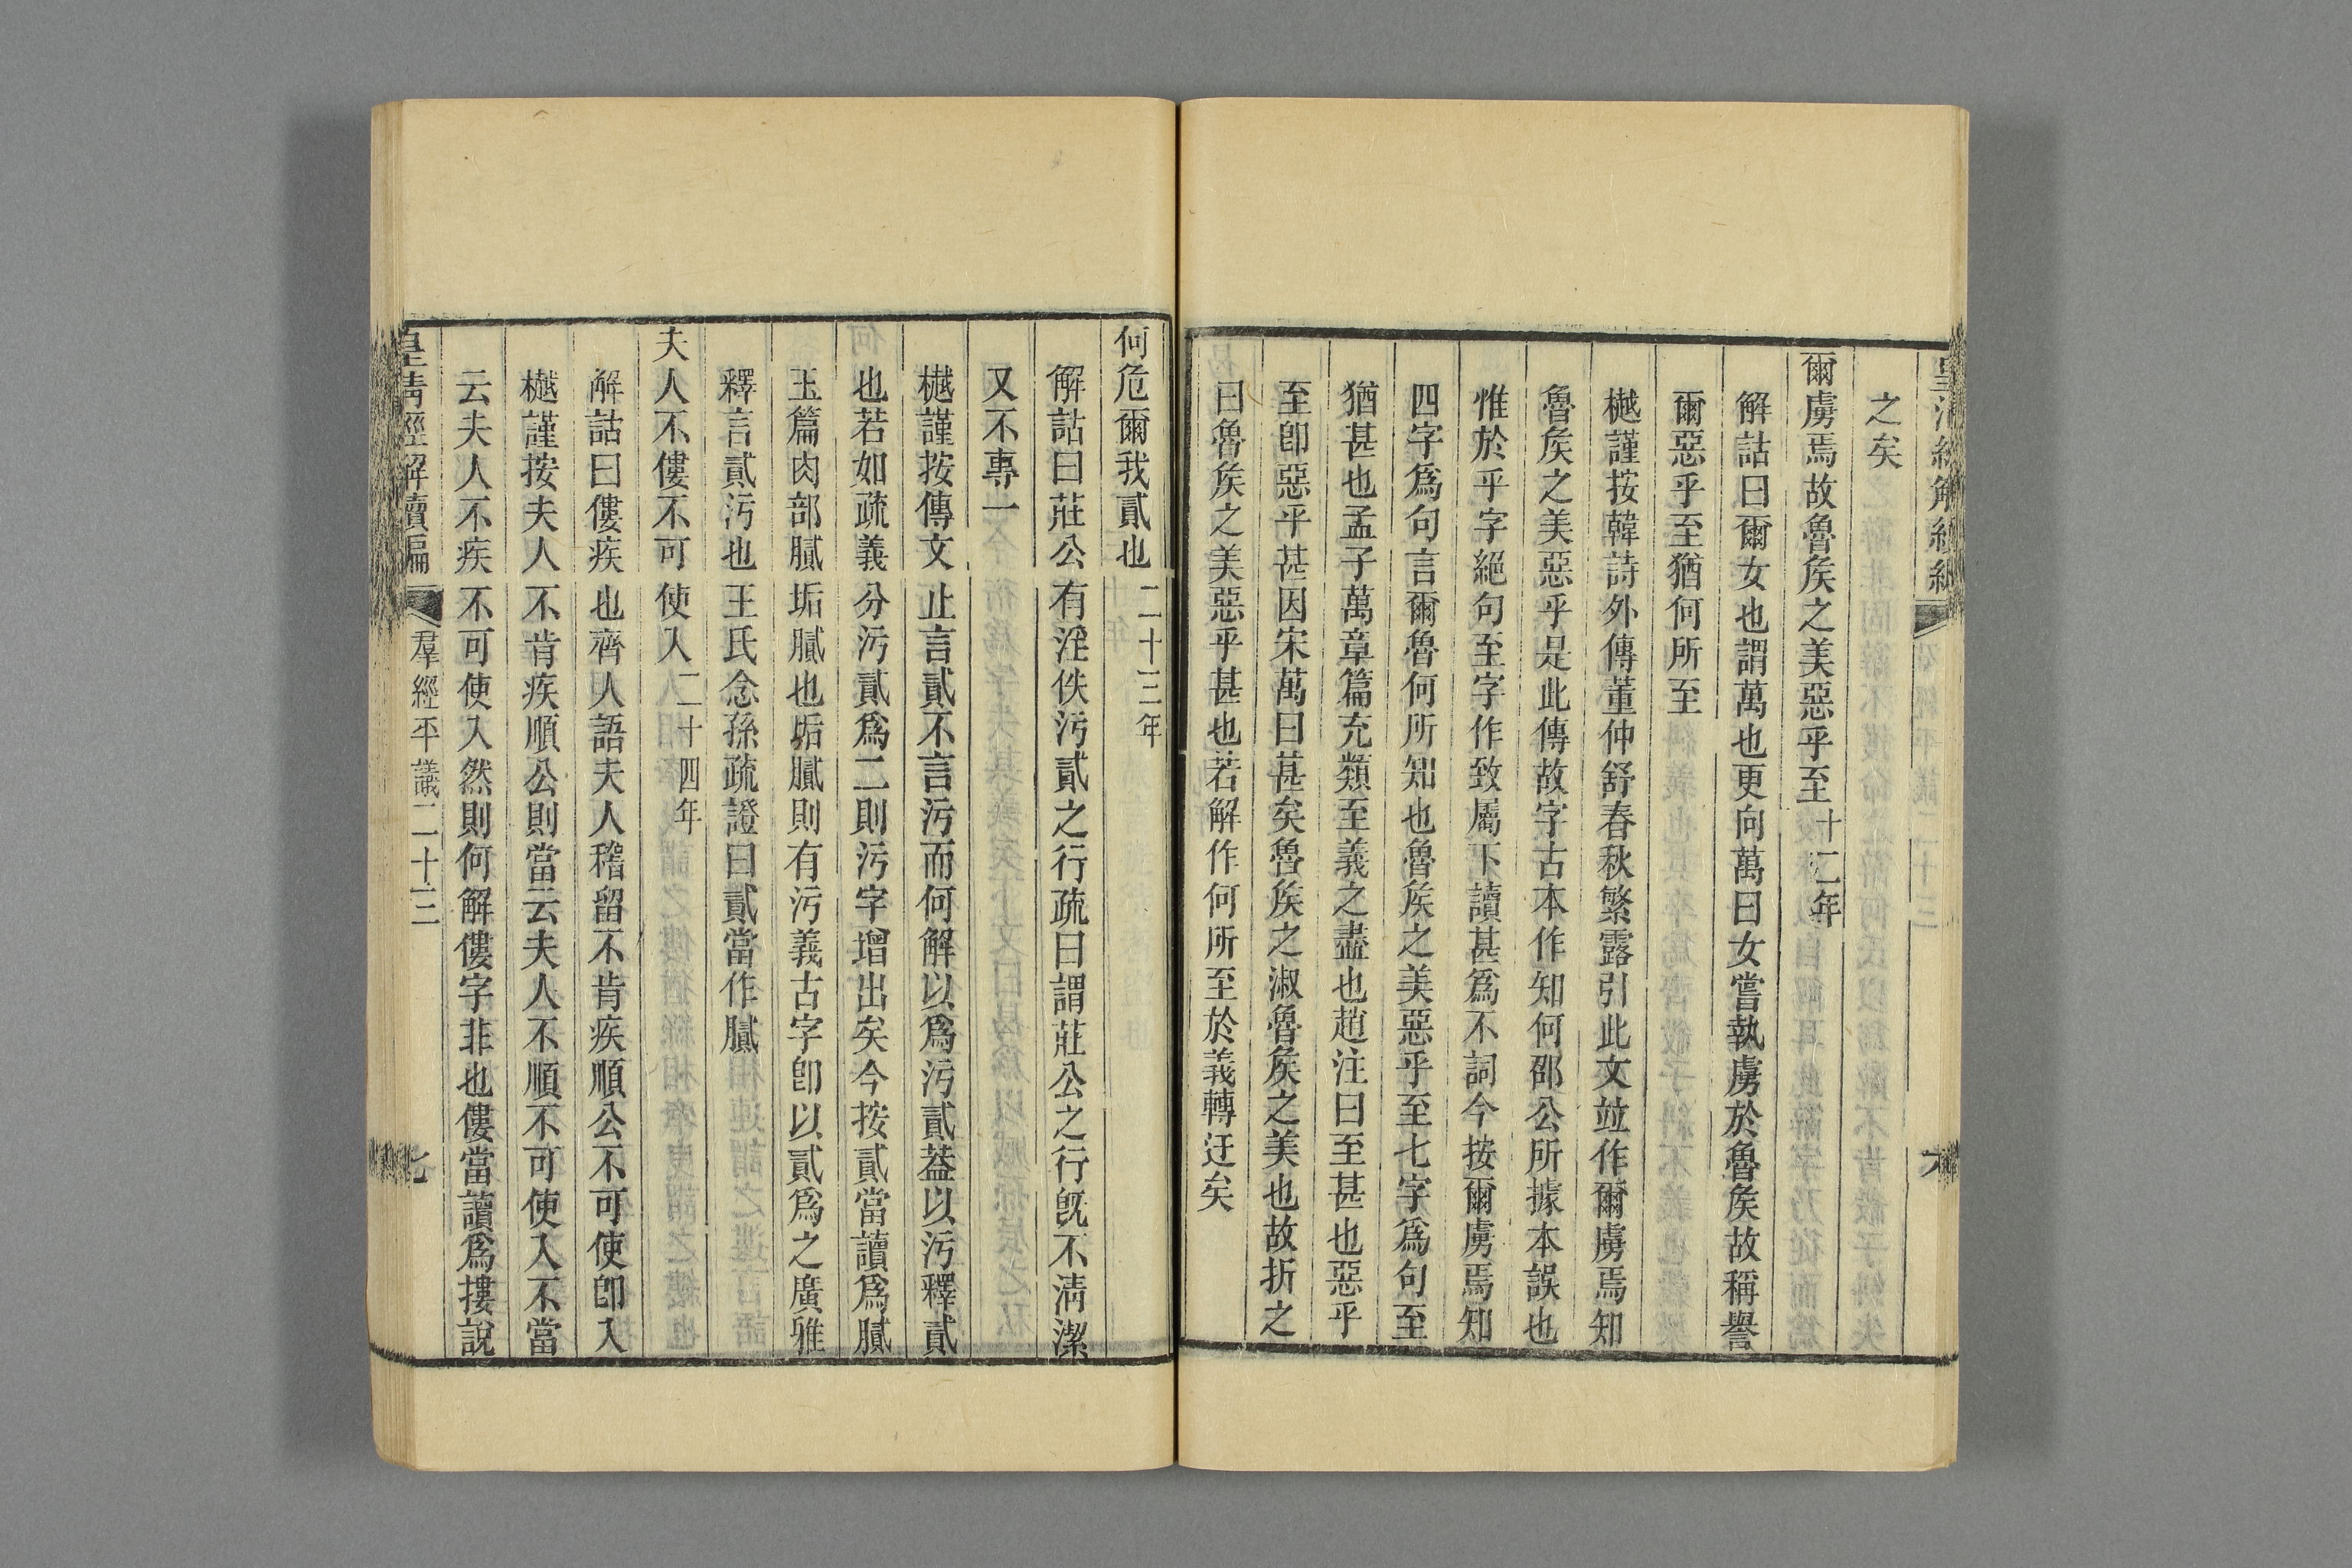 之矣
爾虜焉故魯矦之美惡乎至十二年
解詁曰爾女也謂萬也更向萬曰女嘗執虜於魯矦故稱譽
爾惡乎至猶何所至
樾謹按韓詩外傳董仲舒春秋繁露引此文竝作爾虜焉知
魯矦之美惡乎是此傳故字古本作知何邵公所據本誤也
惟於乎字絕句至字作致屬下讀甚爲不詞今按爾虜焉知
四字爲句言爾魯何所知也魯矦之美惡乎至七字爲句至
猶甚也孟子萬章篇充類至義之盡也趙注曰至甚也惡乎
至卽惡乎甚因宋萬曰甚矣魯矦之淑魯矦之美也故折之
曰魯矦之美惡乎甚也若解作何所至於義轉迂矣
何危爾我貳也二十三年
解詁曰莊公有淫佚污貳之行疏曰謂莊公之行旣不淸潔
又不專一
樾謹按傳文止言貳不言污而何解以爲污貳葢以污釋貳
也若如疏義分污貳爲二則污字增出矣今按貳當讀爲膩
玉篇肉部膩垢膩也垢膩則有污義古字卽以貳爲之廣雅
釋言貳污也王氏念孫疏證曰貳當作膩
夫人不僂不可使入二十四年
解詁曰僂疾也齊人語夫人稽留不肯疾順公不可使卽入
樾謹按夫人不肯疾順公則當云夫人不順不可使入不當
云夫人不疾不可使入然則何解僂字非也僂當讀爲摟說
皇淸經解續編
羣經平議二十三
七